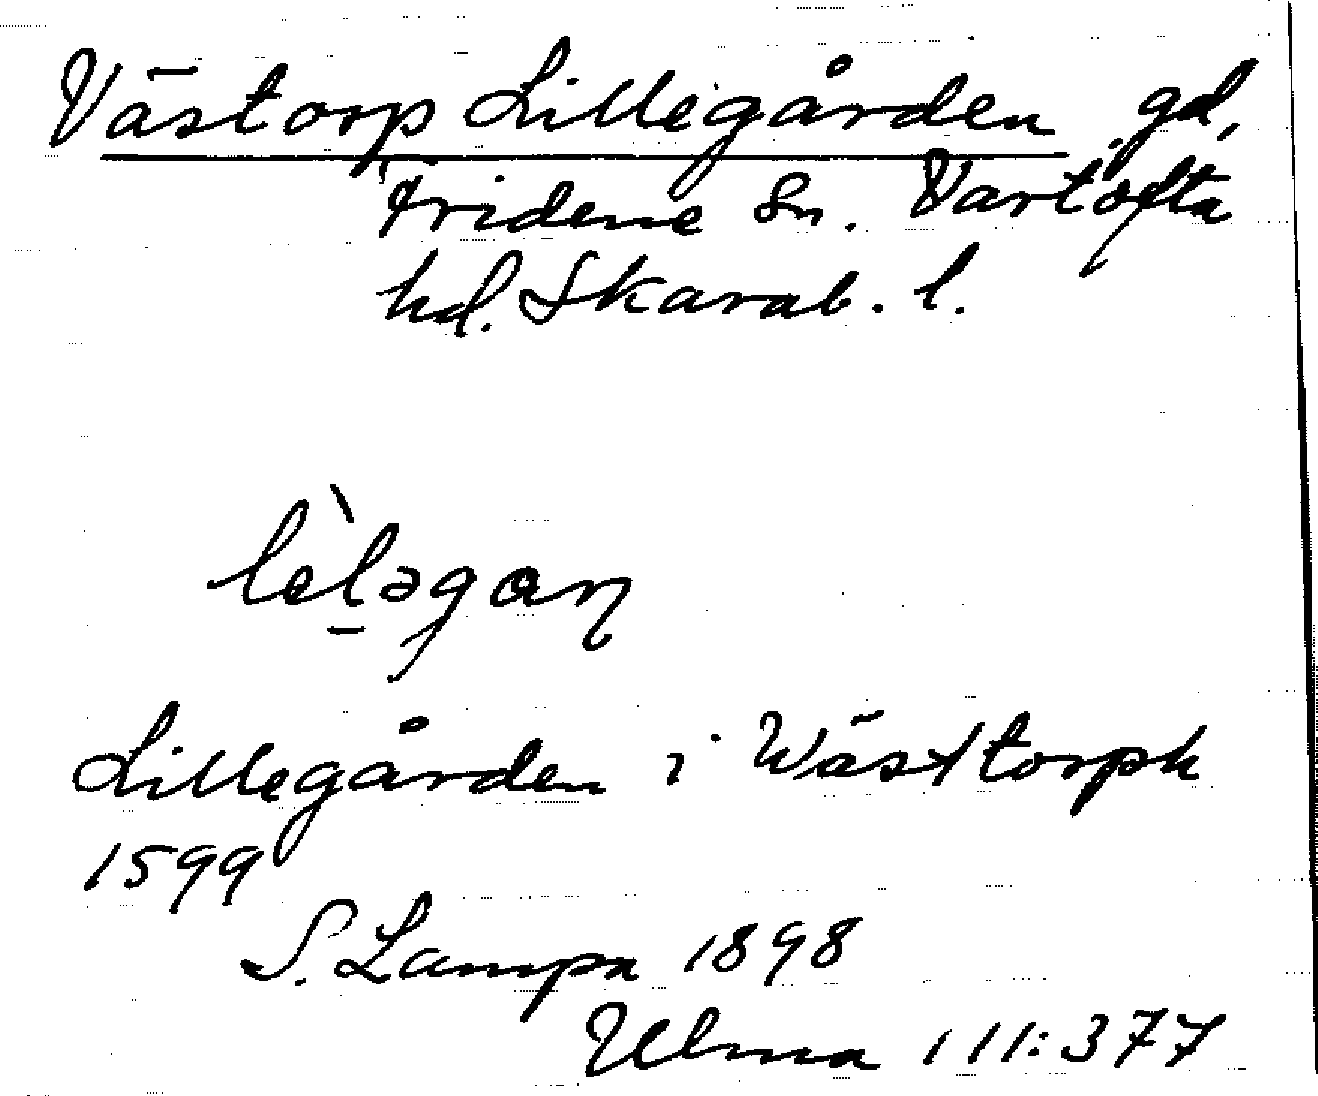 Västorp Lillegården gd,
Fridene Sn. Vartofta
hd. Skarab. l.
lèl̠əgaɳ
Lillegården i Wästtorph
1599
S. Lampa 1898
Ulma 111:377